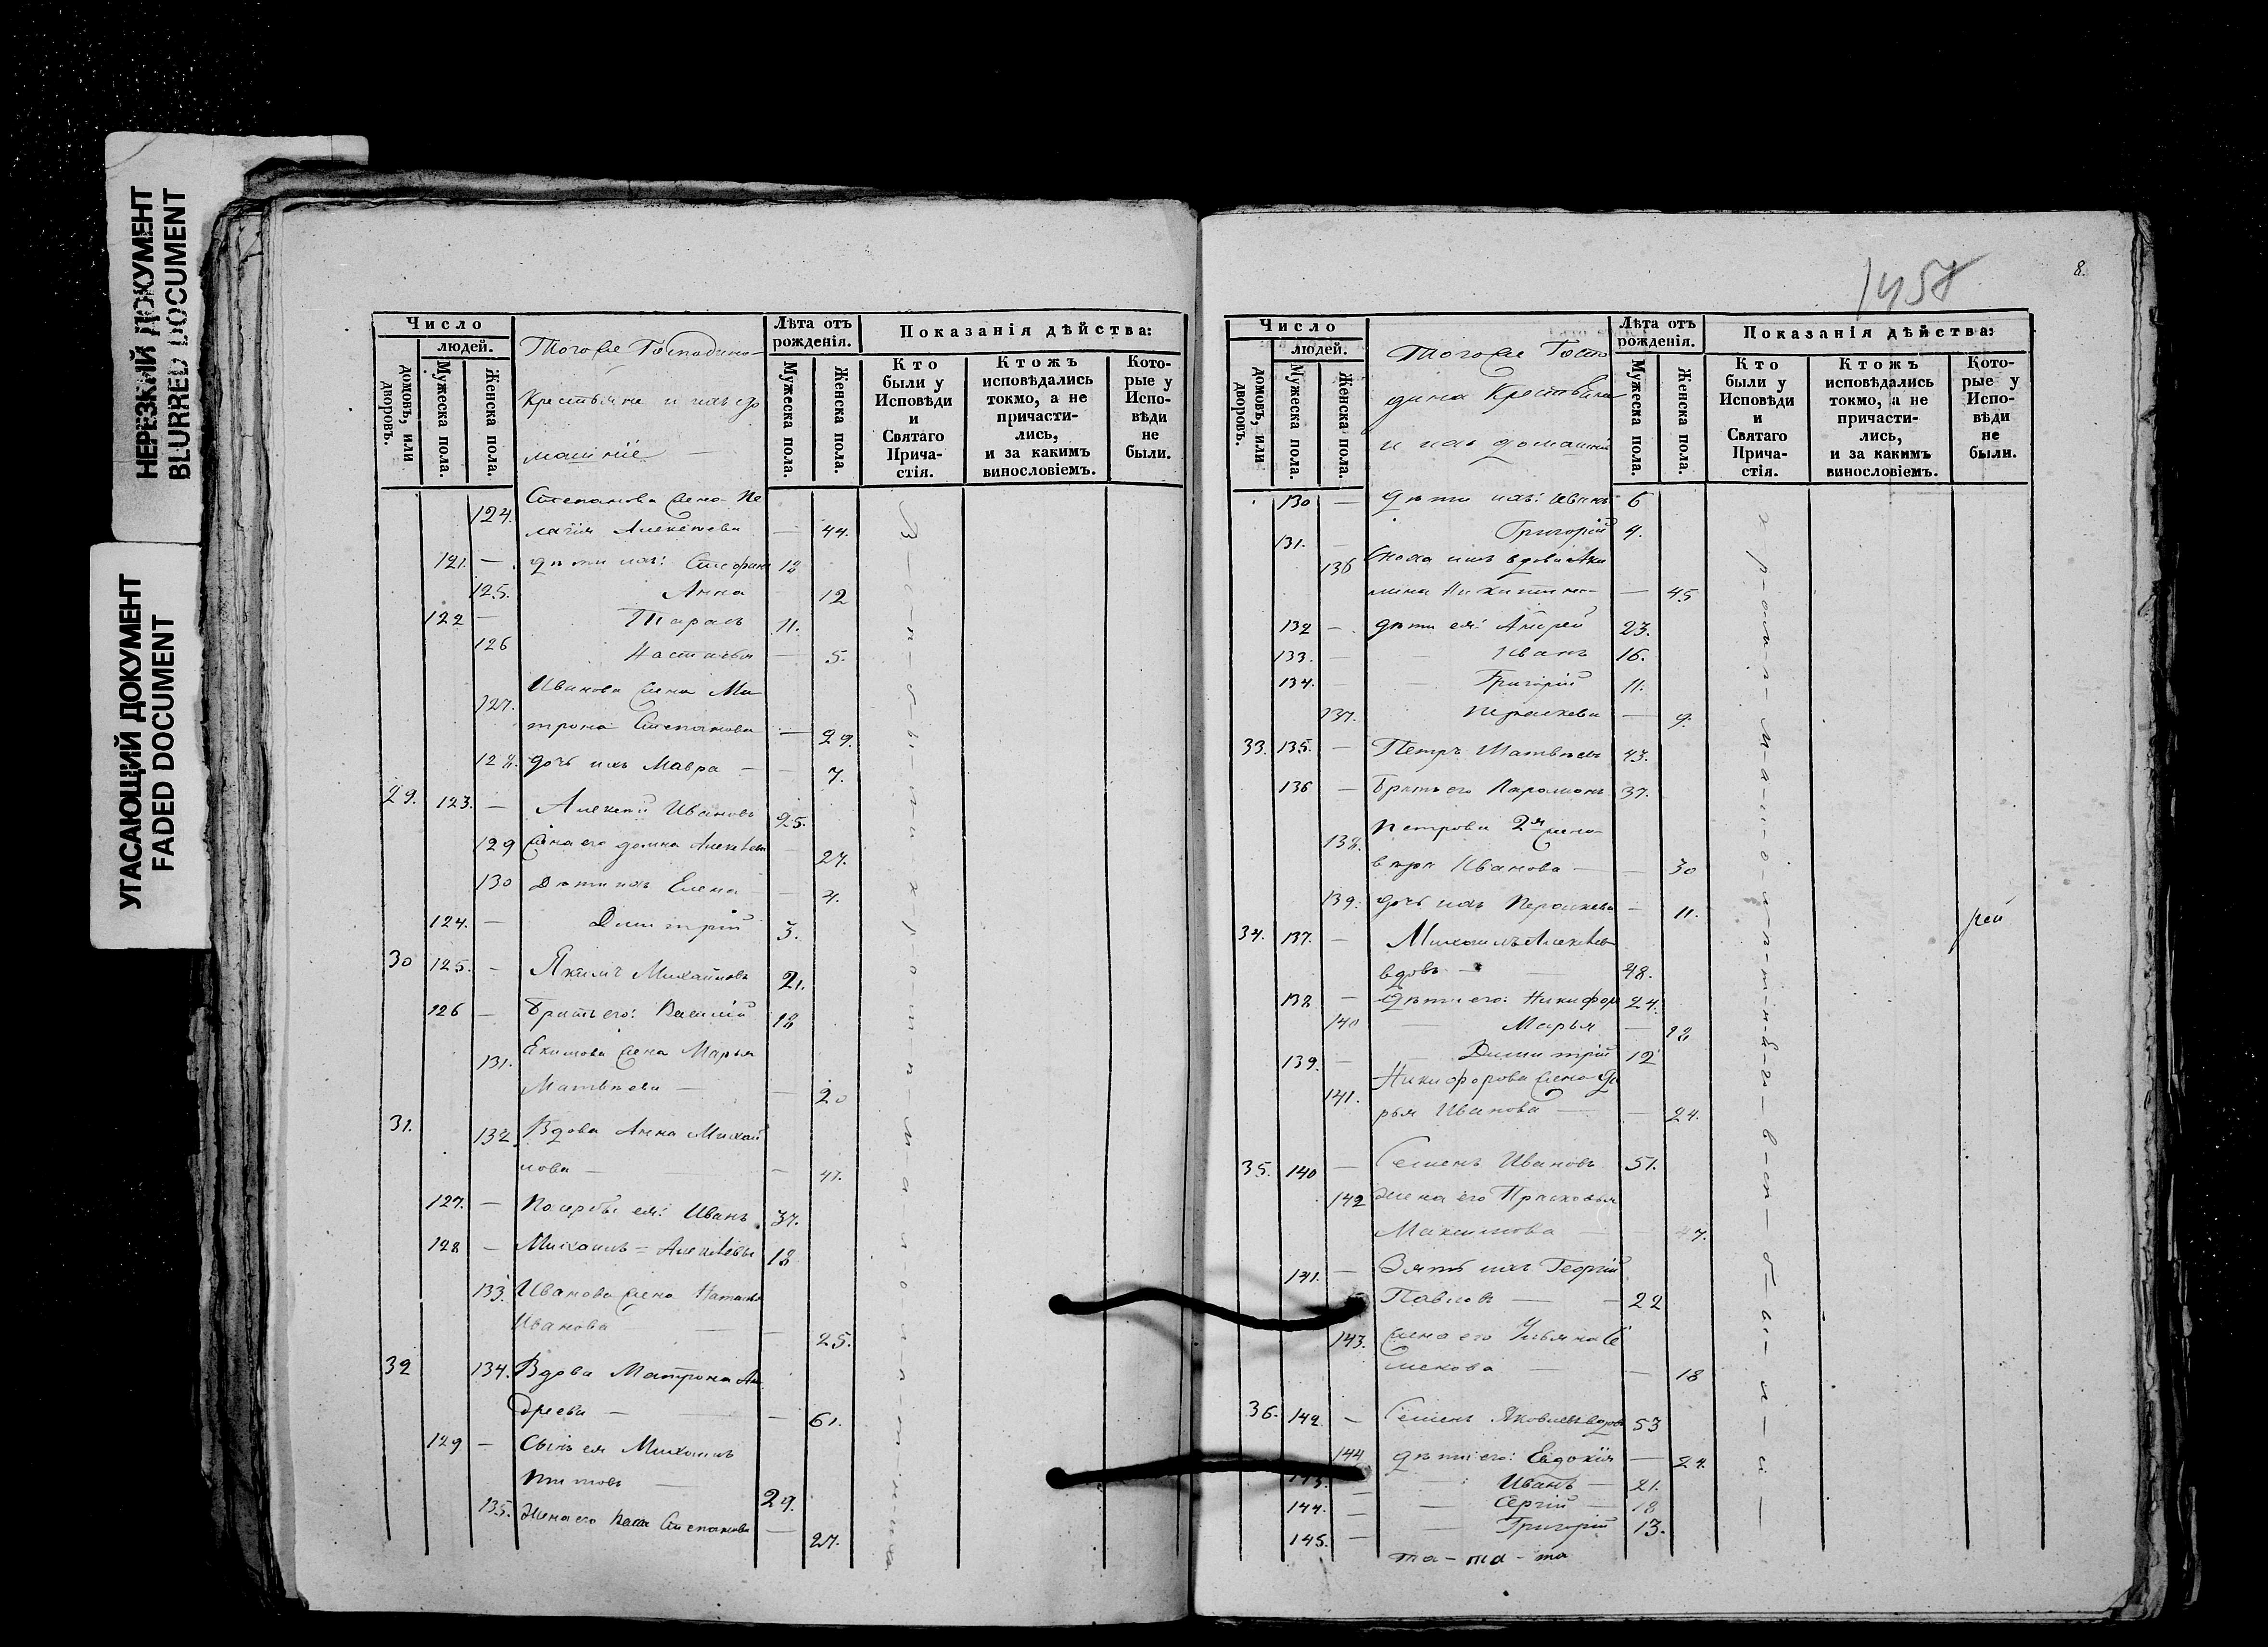 НЕРЕЗКИЙ ДОКУМЕНТ
BLURRED DOCUMENT
УГАСАЮЩИЙ ДОКУМЕНТ
FADED DOCUMENT
Число
людей.
домовъ, или дворовъ.
Мужеска пола.
Женска пола.
Тогоже Господина
Крестьяне и ихъ до
машніе
Лѣта отъ рожденія.
Мужеска пола.
Женска пола.
Показанія дѣйства:
Кто были у Исповѣди и Святаго Прича-стія.
Ктожъ исповѣдались токмо, а не причасти-лись, и за какимъ винословіемъ.
Кото-рые у Испо-вѣди не были.
124. Степанова жена Пе
лагія Алексѣева — 44.
121. — дѣти ихъ: Стефанъ 18
125. Анна 12
122 — Тарасъ 11.
126 Настасья — 5.
127. Иванова жена Ма
трона Степанова — 29.
128. дочь ихъ Мавра — 7.
29. 123. — Алексѣй Ивановъ 25.
129 жена его Домна Алексѣева 27.
130 Дѣти ихъ Елена — 4.
124. — Димитрій 3.
30 125. — Якимъ Михайловъ 21.
126 — Братъ его: Василій 18
131. Якимова жена Марья
Матвѣева — 20
31. 132. Вдова Анна Михай
лова — 41.
127. — Пасербы ея: Иванъ 37.
128 — Михаилъ = Алексѣевы 18
133. Иванова жена Наталья
Иванова — 25.
32 134. Вдова Матрона Ан
дреева — 61.
129 — Сынъ ея Михаилъ
Титовъ 29.
135. Жена его Степанова — 27.
1457
8.
Число
людей.
домовъ, или дворовъ.
Мужеска пола
Женска пола.
Тогоже Госпо
дина Крестьяне
и ихъ домашніе
Лѣта отъ рожденія.
Мужеска пола.
Женска пола.
Показанія дѣйства:
Кто были у Исповѣди и Святаго Прича-стія.
Ктожъ исповѣдались токмо, а не причасти-лись, и за какимъ винословіемъ.
Кото-рые у Испо-вѣди не были.
130 — дѣти ихъ: Иванъ 6
131. — Григорій 4.
136 Сноха ихъ вдова Аки
лина Никитина — 45
132 — дѣти ея: Андрей 23.
133. — Иванъ 16.
134. — Григорій 11.
137. Параскева — 9.
33. 135. — Петръ Матвѣевъ 43.
136 — Братъ его Парамонъ 37.
138. Петрова 2я жена
Иванова — 30
139. дочь ихъ Параскева — 11.
34. 137. — Михаилъ Алексѣевъ
вдовъ — 48.
138 — дѣти его: Никифоръ 24.
140 — Марья — 18
139. — Димитрій 12
141. Никифорова жена Да
рья Иванова — 24.
35. 140 — Семенъ Ивановъ 51.
142 Жена его Прасковья
Максимова — 47.
141. — Зять ихъ Георгій
Павловъ — 22
143. жена его Ульяна Се
менова — 18
36. 142. — Семенъ Яковлевъ вдовъ 53
144 дѣти его: Евдокія — 24.
143. — Иванъ — 21.
144. — Сергій — 18
145. — Григорій 13.
та-та-та